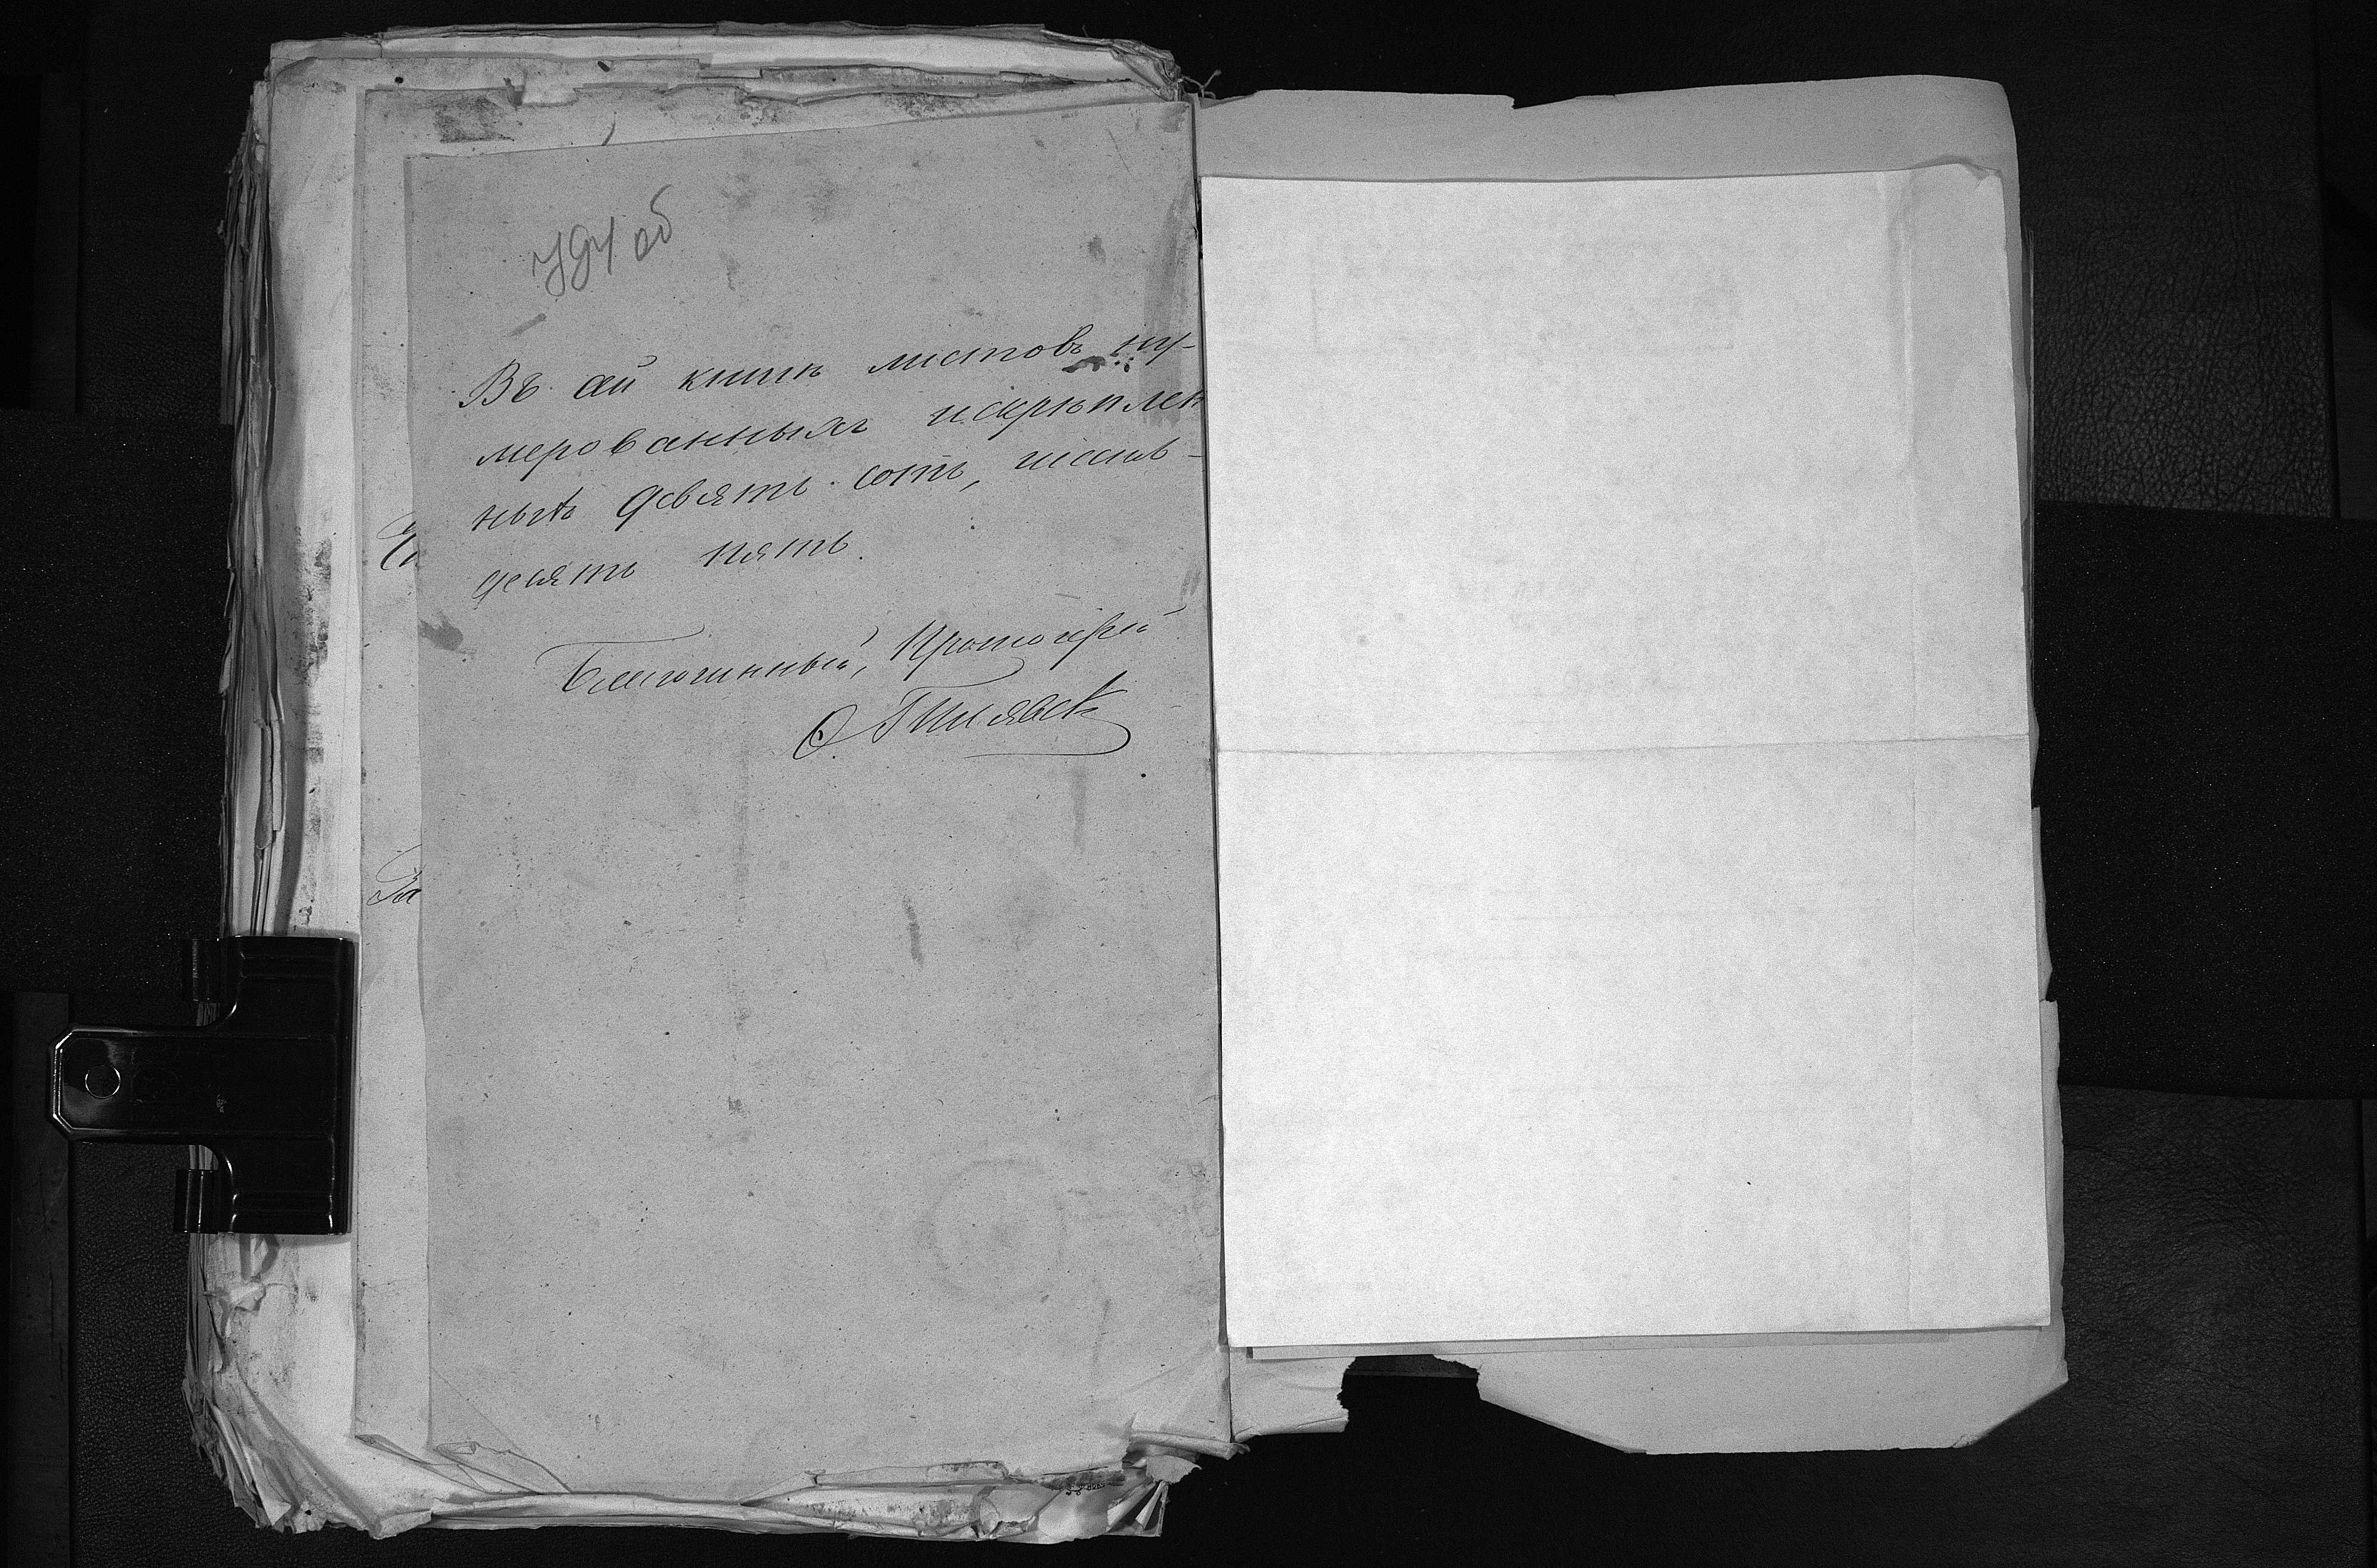 794 об
Въ ей книгѣ листовъ ну-
мерованныхъ и скрѣплен
ныхъ девять сотъ, шесть-
десятъ пять.
Благочинный, Протоіерей